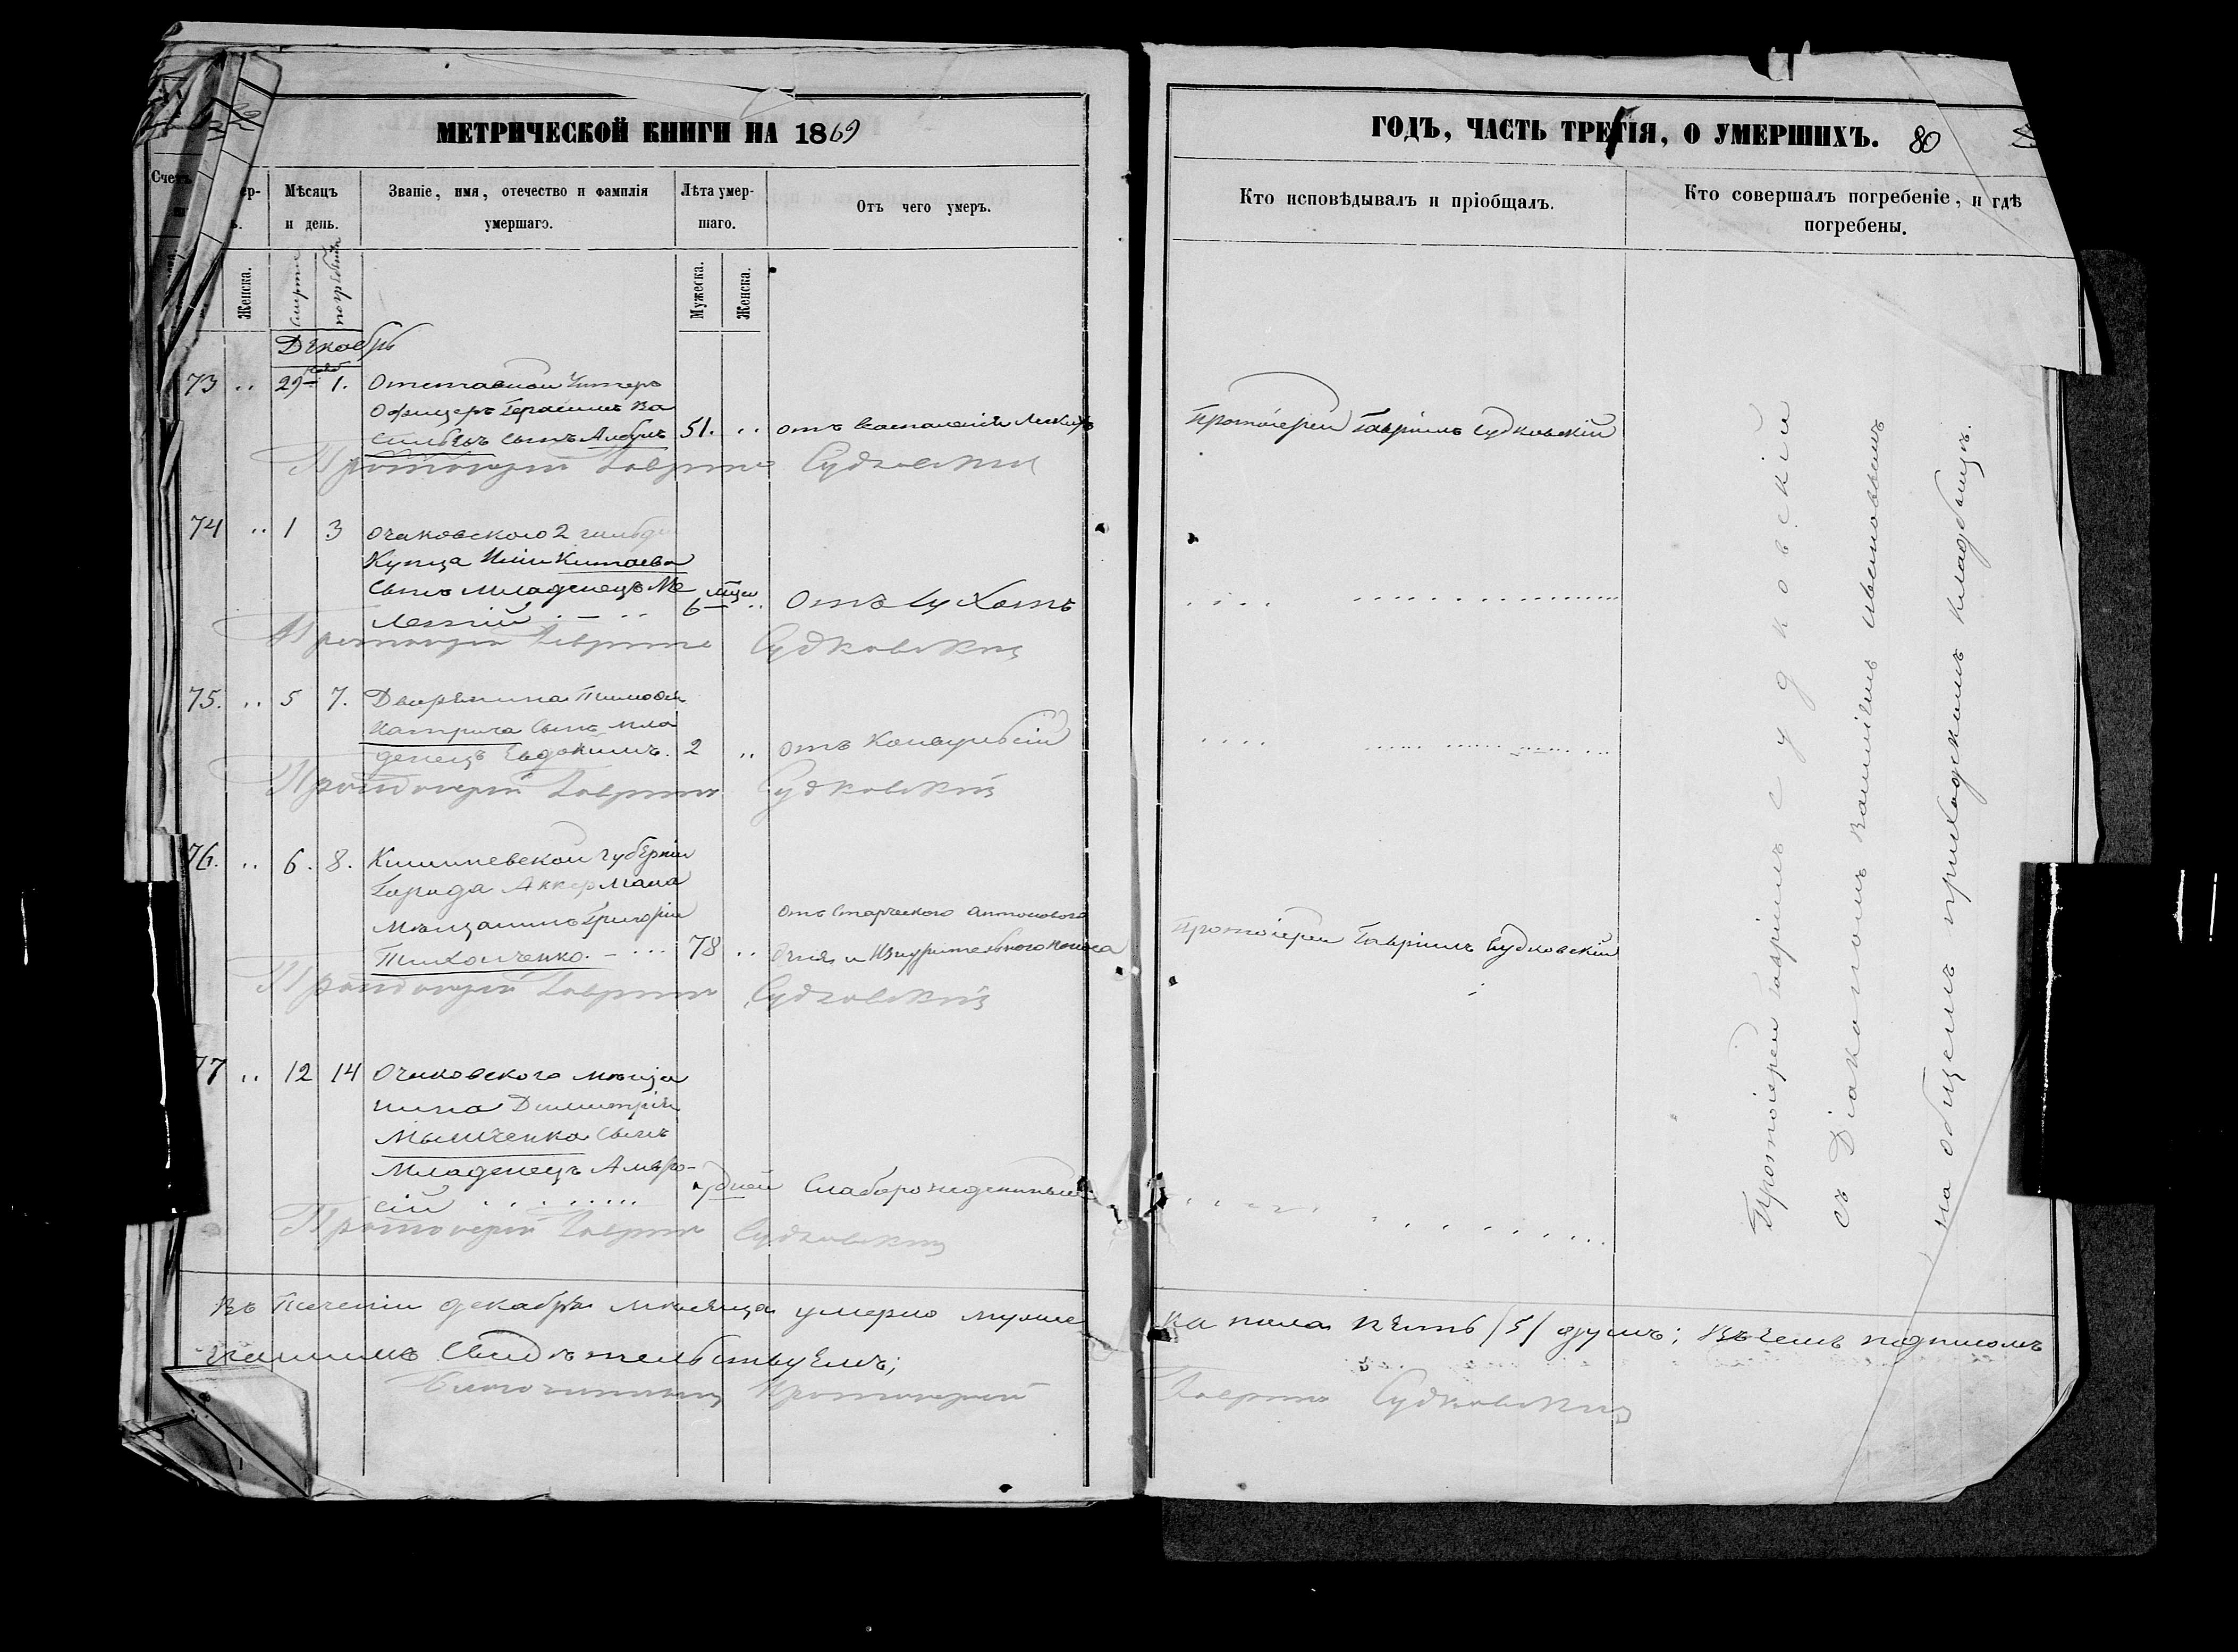 МЕТРИЧЕСКОЙ КНИГИ НА 1869
ГОДЪ, ЧАСТЬ ТРЕТІЯ, О УМЕРШИХЪ. 80
Счетъ
Мѣсяцъ и день.
Званіе, имя, отечество и фамилія умершаго.
Лѣта умершаго.
Отъ чего умеръ.
Кто исповѣдывалъ и пріобщалъ.
Кто совершалъ погребеніе, и гдѣ погребены.
Женска.
смерти
погребенія
Мужеска.
Женска.
Декабрь
73 .. 29 1. Отставной Унтеръ
Офицеръ Герасимъ Ва
сильевъ сынъ 51. .. отъ Воспаленія Легкихъ
Протоіерей Гавріилъ Судковскій
Протоіерей Гавріилъ Судковскій
74 .. 1 3 Очаковского 2 гильди
Купца Иліи Китаева
Сынъ младенецъ Ме
летій 6 мцев .. Отъ Сухотъ
Протоіерей Гавріилъ Судковскій
75. .. 5 7. Дворянина Тимофея
сынъ мла
денецъ Евдокимъ. 2 .. отъ Конвульсій
Протоіерей Гавріилъ Судковскій
76. .. 6. 8. Кишиневской губерніи
Города Аккермана
Мѣщанинъ Григорій
Тихонченко. 78 .. отъ Старческого антонового
огня и Изнурительного поноса
Протоіерей Гавріилъ Судковскій
Протоіерей Гавріилъ Судковскій
77 .. 12 14 Очаковского мѣща
нина Димитрія
сынъ
Младенецъ Амвро-
сій дней Слаборожденный
Протоіерей Гавріилъ Судковскій
Протоіерей Гавріилъ Судковскій
съ Діакономъ
на общемъ приходскомъ кладбищѣ.
Въ теченіи декабря мѣсяца умерло мужес
ка пола пять /5/ душъ; Въ чемъ подписомъ
нашимъ Свидѣтельствуемъ;
Благочинный Протоіерей Гавріилъ Судковскій